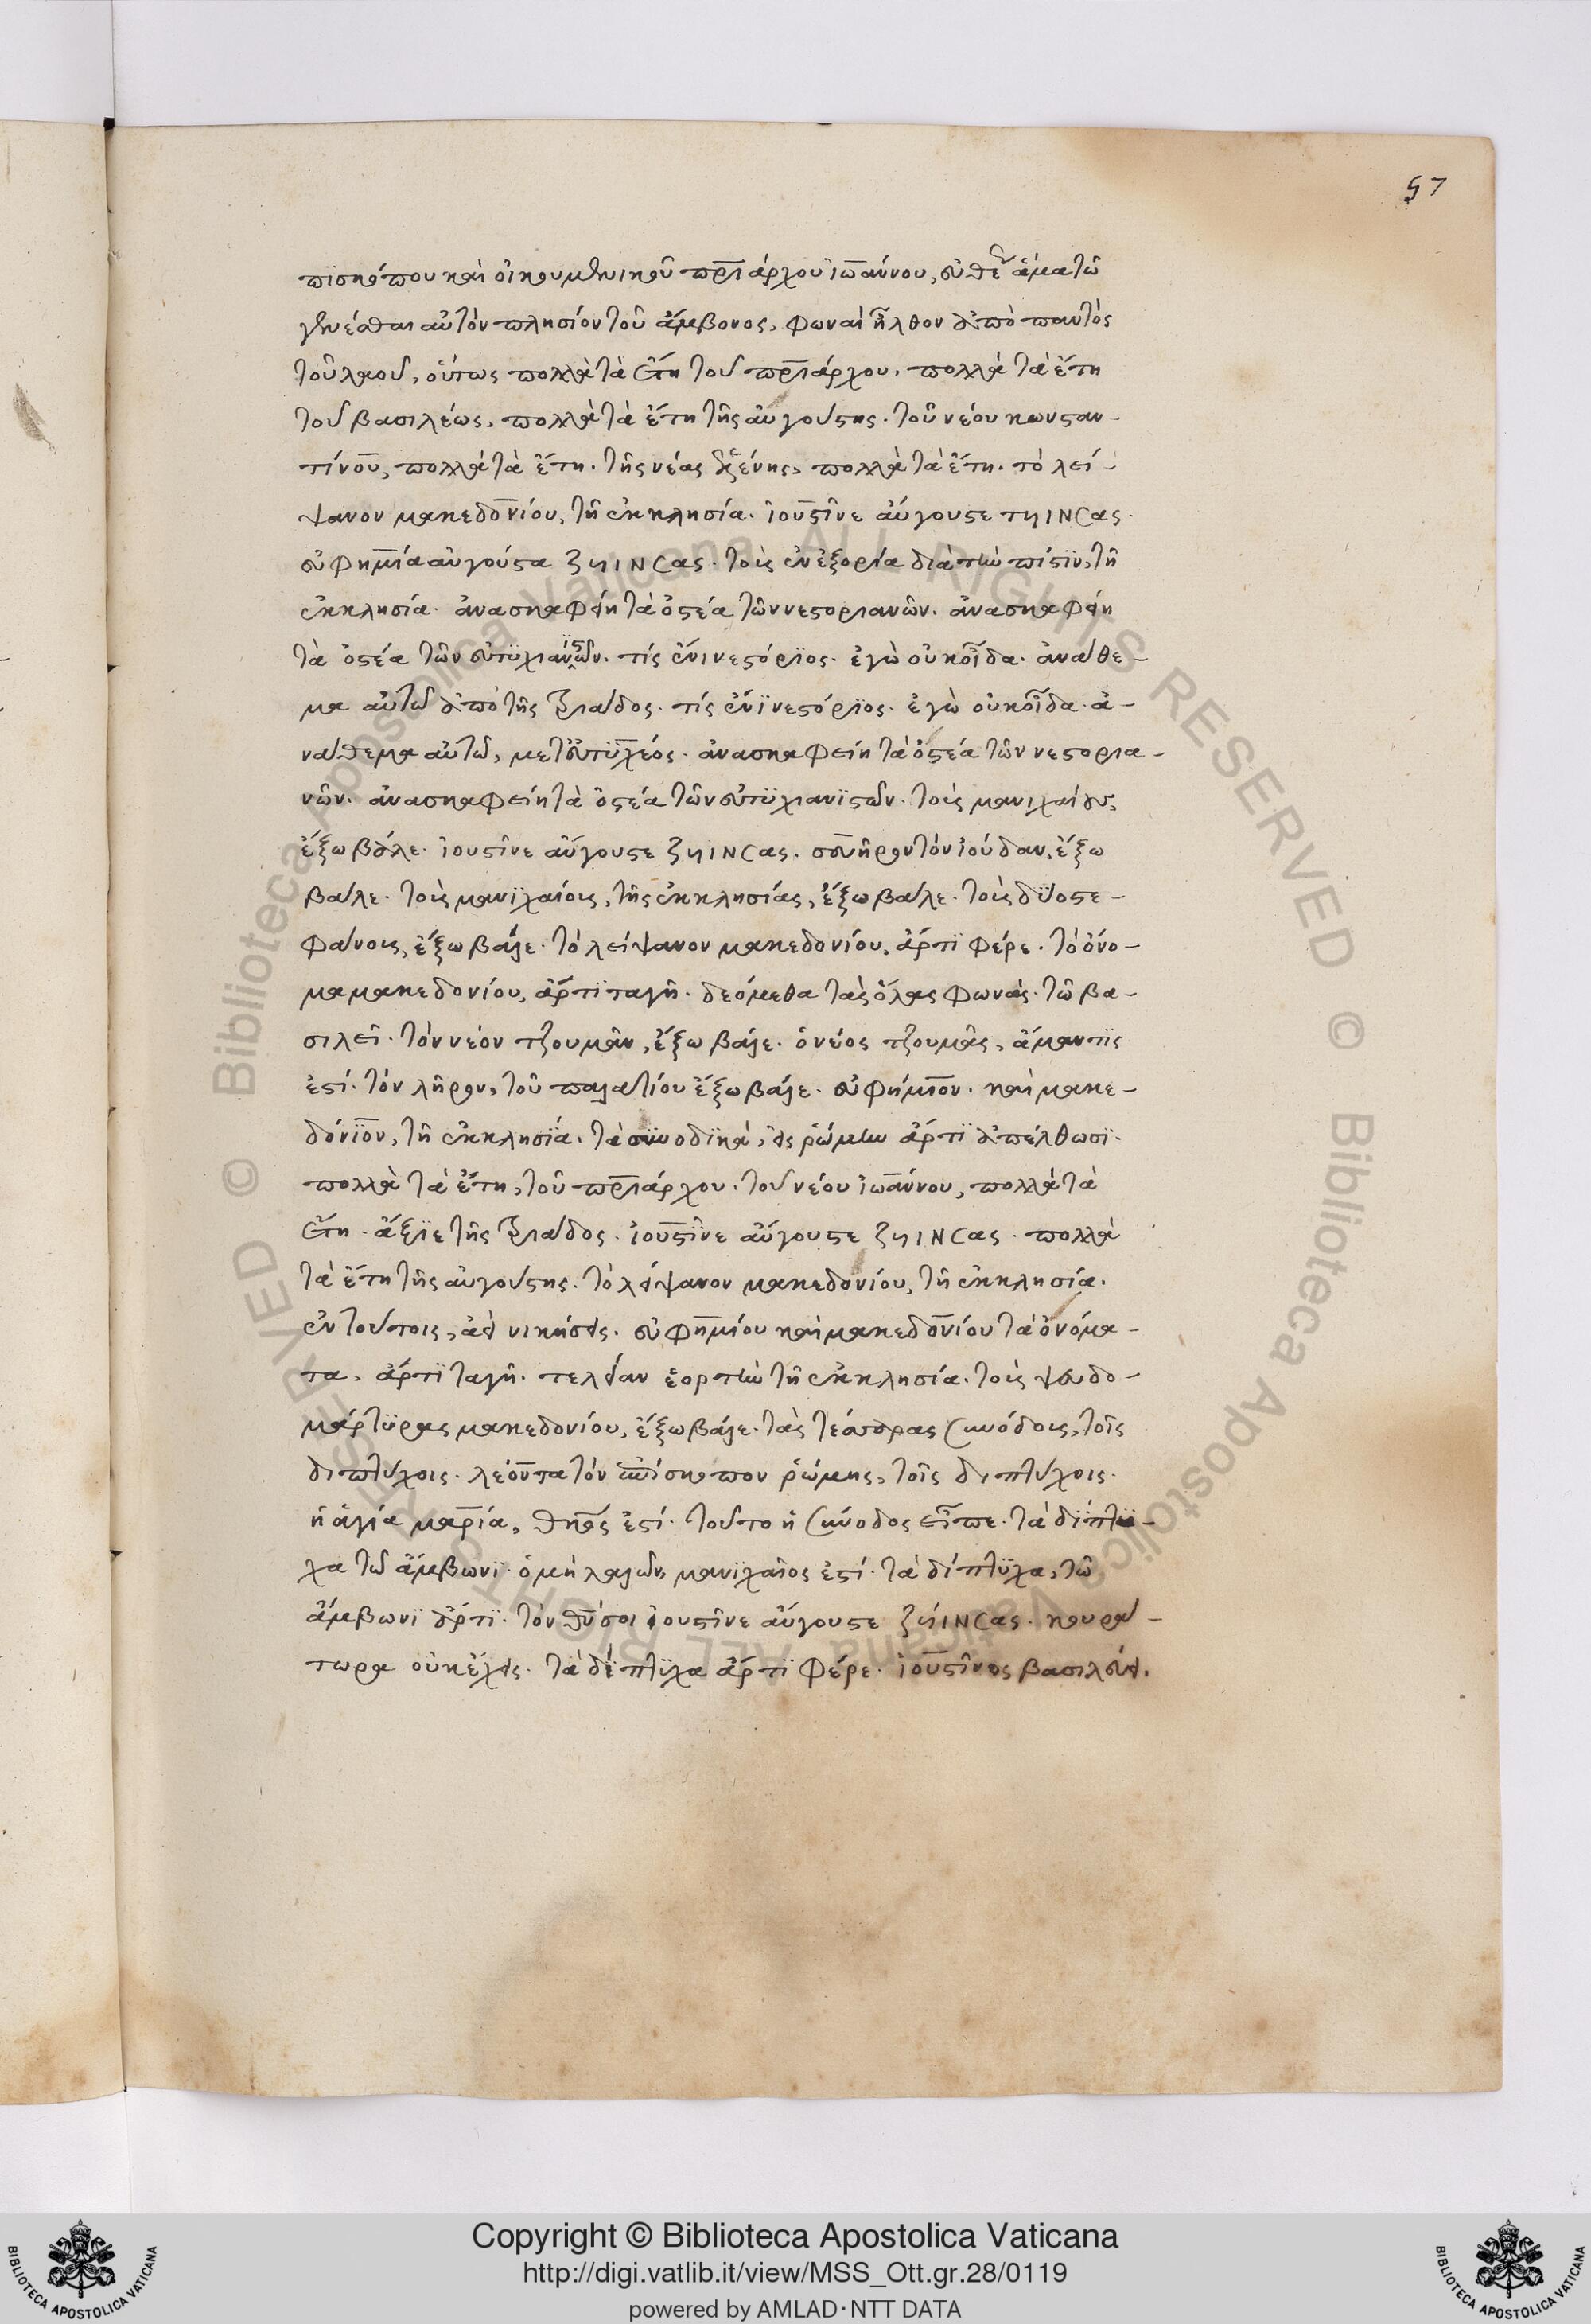 57
πϊσκόπου καὶ οἰκουμενικοῦ πρ̅ιάρχου ἰω̅άννου, εὐθὺς ἅμα τῶ
γενέσθαι αὐτὸν πλησίον τοῦ ἄμβονος, φωναὶ ἦλθον ἀπὸ παντὸς
τοῦ λαοῦ, οὕτως πολλὰ τὰ ἔτη τοῦ πρ̅ιάρχου. πολλὰ τὰ ἔτη
τοῦ βασιλέως, πολλὰ τὰ ἔτη τῆς αὐγούστης. τοῦ νέου κωνσταν-
τίνου, πολλὰ τὰ ἔτη. τῆς νέας ἑλένης, πολλὰ τὰ ἔτη. τὸ λεί-
ψανον μακεδονίου, τῆ ἐκκλησία. ἰουστῖνε αὔγουστε τηINCας.
εὐφημία αὐγούστα ζηINCας. τοὺς ἐν ἐξορία διὰ τὴν πίστϊν, τῆ
ἐκκλησία. ἀνασκαφείη τὰ ὀστέα τῶν νεστοριανῶν. ἀνασκαφείη
τὰ ὀστέα τῶν εὐτϋχιανϊστῶν. τίς ἔνι νεστόρϊος. ἐγὼ οὐκ οἶδα. ἀνάθε-
μα αὐτῶ ἀπὸ τῆς τριάδος. τίς ἔνϊ νεστόρϊος. ἐγὼ οὐκ οἶδα. ἀ-
νάθεμα αὐτῶ, μετ' εὐτϋχέος. ἀνασκαφείη τὰ ὀστέα τῶν νεστορια-
νῶν. ἀνασκαφείη τὰ ὀστέα τῶν εὐτϋχιανϊστῶν. τοὺς μανιχαίους
ἔξω βάλε. ἰουστῖνε αὔγουστε ζηINCας. σευῆρον τὸν ἰούδαν, ἔξω
βάλε. τοὺς μανϊχαίους, τῆς ἐκκλησίας, ἔξω βάλε. τοὺς δϋοστε-
φάνους, ἔξω βάλε. τὸ λείψανον μακεδονίου, ἄρτϊ φέρε. τὸ ὄνο-
μα μακεδονίου, ἄρτϊ ταγῆ. δεόμεθα τὰς ὅλας φωνὰς. τῶ βα-
σιλεῖ. τὸν νέον τζουμᾶν, ἔξω βάλε. ὁ νέος τζουμᾶς, ἀμαντϊς
ἐστί. τὸν λῆρον, τοῦ παλατίου ἔξω βάλε. εὐφήμιον. καὶ μακε-
δόνϊον, τῆ ἐκκλησϊά. τὰ συνοδϊκὰ, εἰς ῥώμην ἄρτϊ ἀπέλθωσϊ.
πολλὰ τὰ ἔτη, τοῦ πρ̅ιάρχου. τοῦ νέου ἰω̅άννου, πολλὰ τὰ
ἔτη. ἄξϊε τῆς τριάδος. ἰουστῖνε αὔγουστε ζηINCας. πολλὰ
τὰ ἔτη τῆς αὐγούστης. τὸ λείψανον μακεδονίου, τῆ ἐκκλησία.
ἐν τούτοις, ἀεὶ νικήσεις. εὐφημίου καὶ μακεδονίου τὰ ὀνόμα-
τα, ἄρτϊ ταγῆ. τελείαν ἑορτὴν τῆ ἐκκλησία. τοὺς ψευδο-
μάρτϋρας μακεδονίου, ἔξω βάλε. τὰς τέσσαρας συνόδους, τοῖς
διπτύχοις. λέοντα τὸν ἐπίσκοπον ῥώμης, τοῖς διπτύχοις.
ἡ ἁγία μαρία, θεοτόκος ἐστί. τοῦτο ἡ σύνοδος εἶπε. τὰ δίπτϋ-
χα τῶ ἄμβωνϊ. ὁ μὴ λαλῶν, μανϊχαῖος ἐστί. τὰ δίπτϋχα, τῶ
ἄμβωνϊ ἄρτϊ. ἰουστῖνε αὔγουστε ζήINCας. κουρά-
τωρα οὐκ ἔχεις. τὰ δίπτϋχα ἄρτϊ φέρε. ἰουστῖνος βασιλεύει.
Copyright © Biblioteca Apostolica Vaticana
http://digi.vatlib.it/view/MSS_Ott.gr.28/0119
powered by AMLAD · NTT DATA